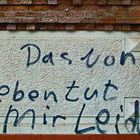 Das Von
eben tut
Mir Leid